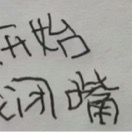 开始
闭嘴